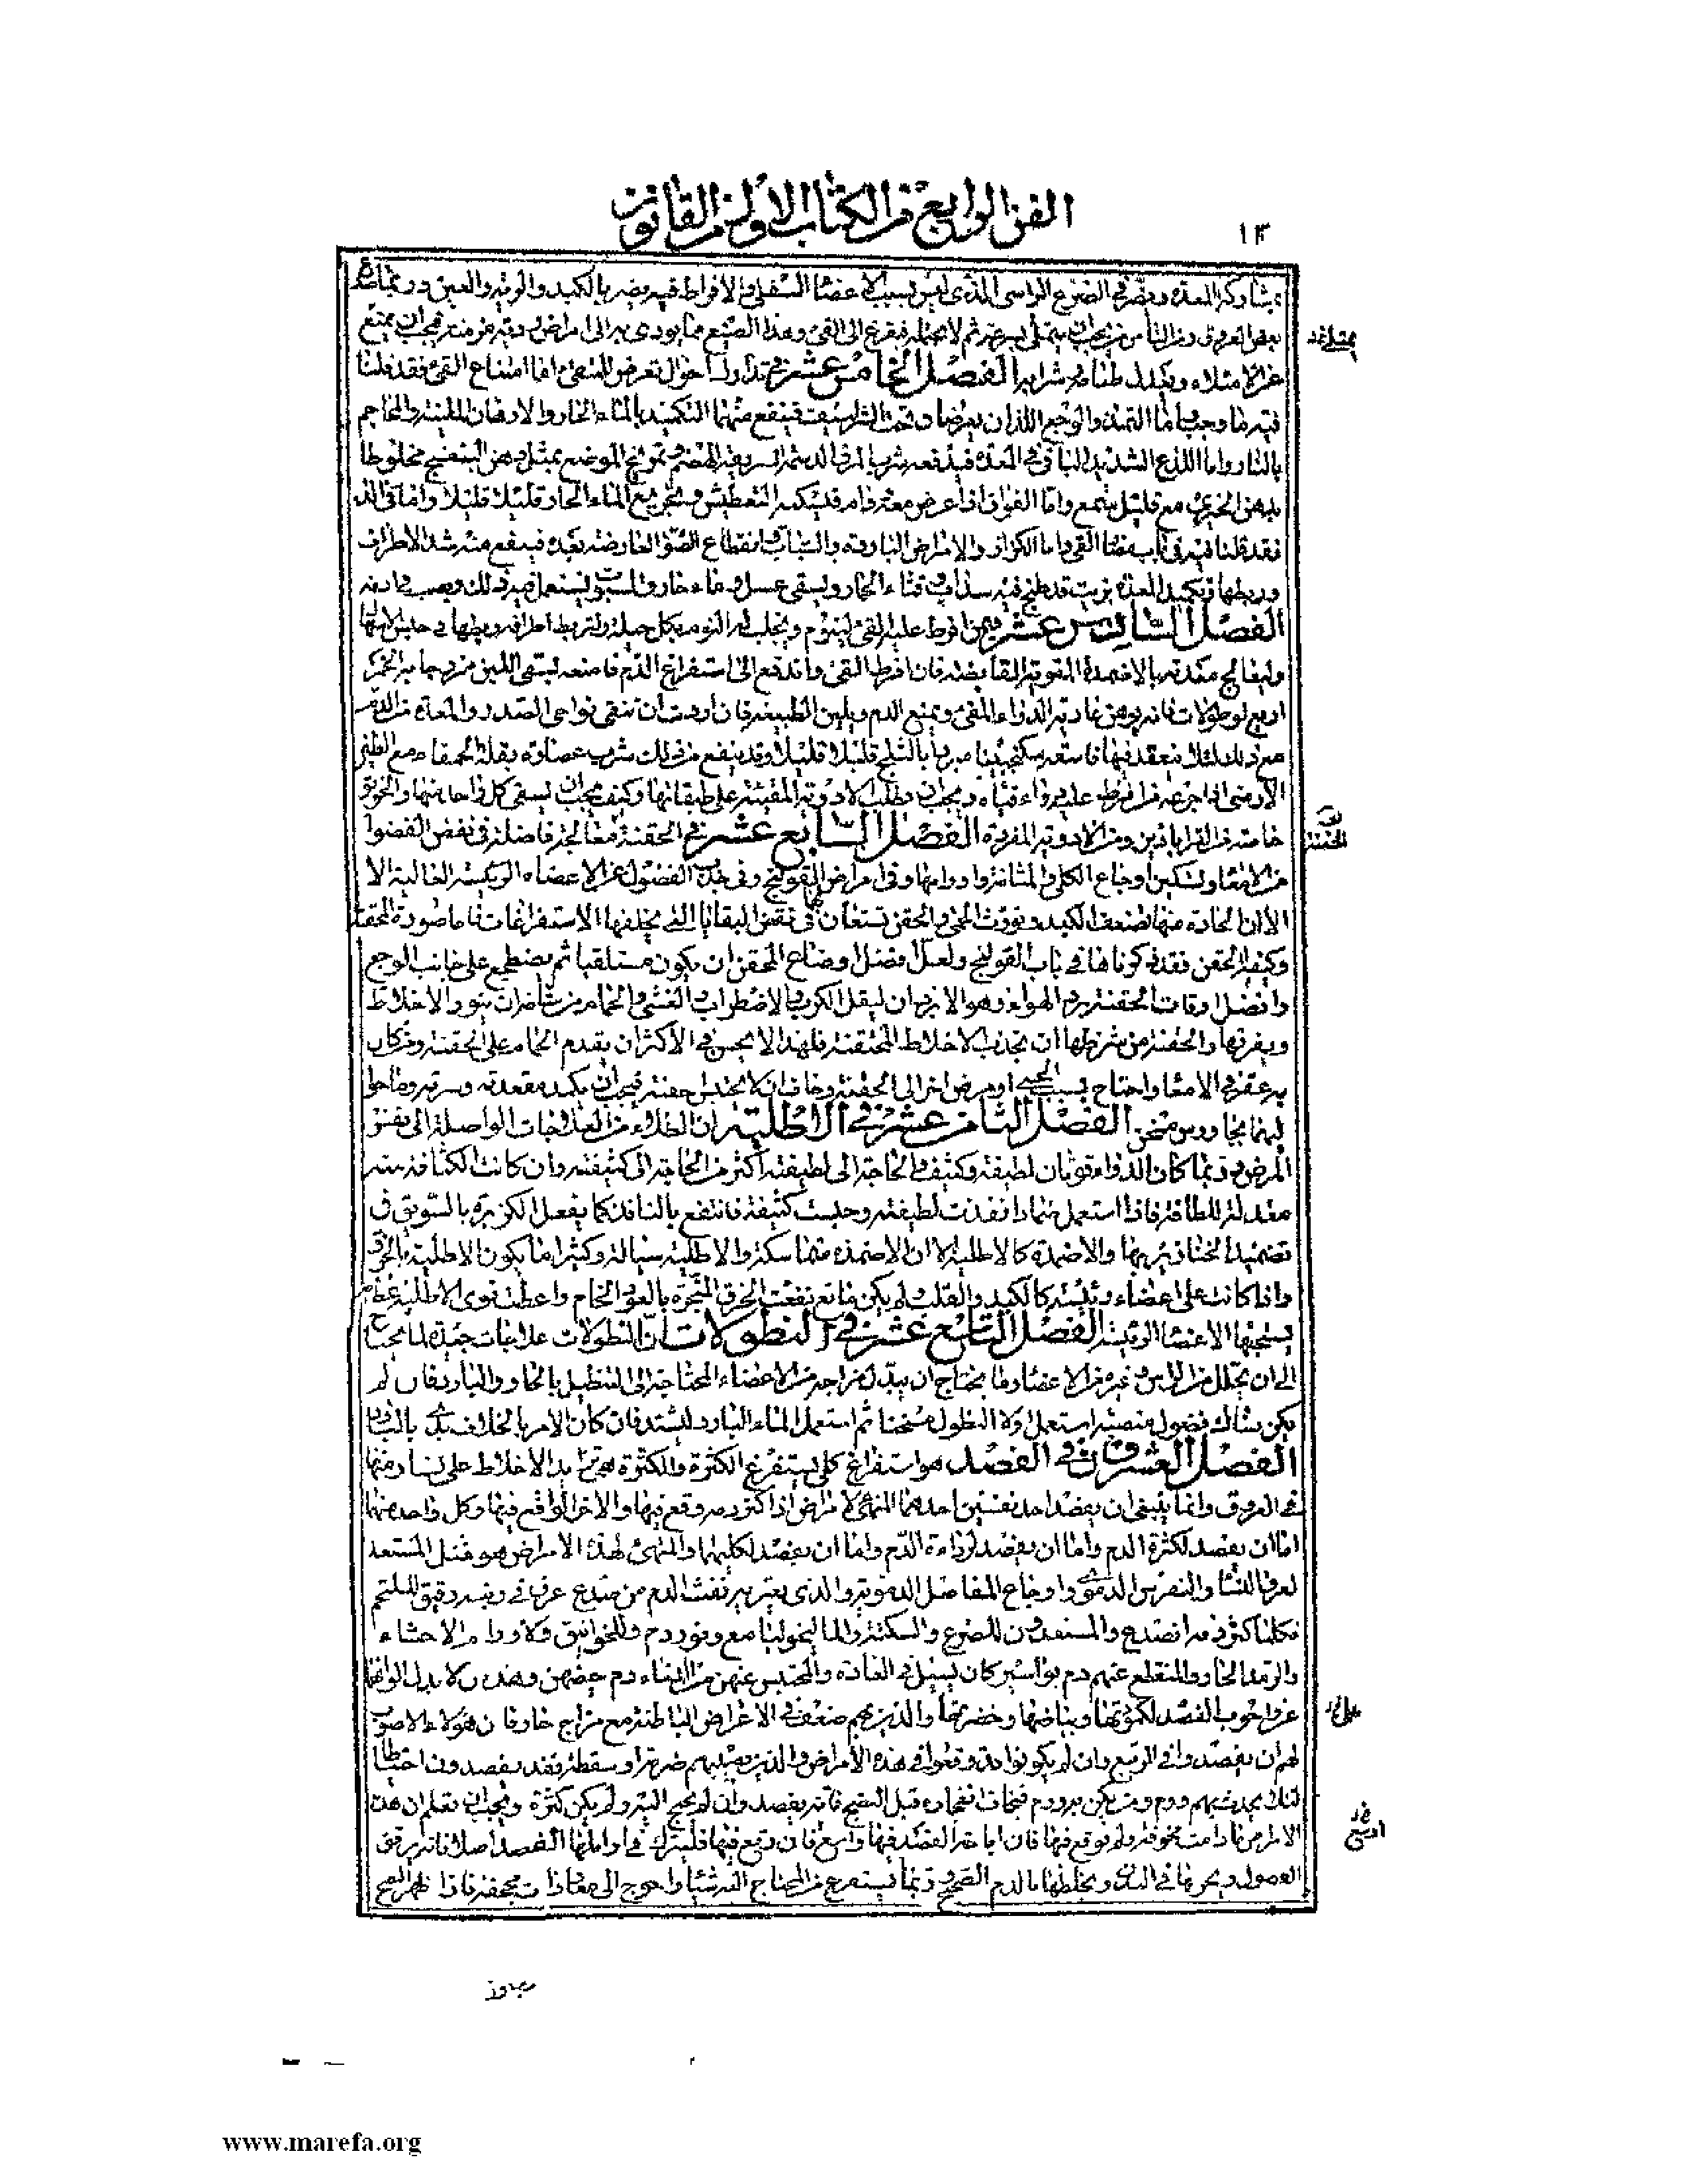 الفن الرابع من الكتاب الاول من القانون
١٣
بمشاركة المعدة ويضر في الصرع الراسى الذى ليس بسبب الاعضا السفلى والافراط فيه يضر بالكبد والرية والعين وربما صدع
بعض العروق ومن الناس من يحب ان يتملى بسرعة ثم لا يحتمله فيفزع الى القئ وهذا الصنيع مما يودى به الى امراض ردية مزمنة فيجب ان يمتنع
عن الامتلاء ويعدل طعامه وشرابه الفصل الخامس عشر فى تدارك احوال تعرض للمتقئ اما امتناع القئ فقد قلنا
فيه ما وجب واما التمدد والوجع اللذان يعرضان تحت الشراسيف فينفع منهما التكميد بالماء الحار والادهان الملينة والمحاجم
بالنار واما اللذع الشديد الباقى فى المعدة فيدفعه شرب المرق الدسمة السريعة الهضم وتمريخ الموضع بمثل دهن البنفسج مخلوطا
بدهن الخيرى مع قليل شمع واما الفواق اذا عرض معه ودام فليسكنه التعطيش وتجريع الماء الحار قليلا قليلا واما قئ الدم
فقد قلنا فيه فى باب مضار القئ واما الكزاز والامراض الباردة والسبات وانقطاع الصوت العارضة بعده فينفع منه شد الاطراف
وربطها وتكميد المعدة بزيت قد طبخ فيه سذاب وقثاء الحمار ويسقى عسل وماء حار والمسبوت يستعمل فيه ذلك ويصب فى اذنه
الفصل السادس عشر فيمن افرط عليه القئ لينوم ويجلب له النوم بكل حيلة ولتربط اطرافه كربطها فى حبس الاسهال
وليعالج معدته بالاضمدة المقوية القابضة فان افرط القئ واندفع الى استفراغ الدم فامنعه بسقى اللبن ممزوجا به الخمر
اربع لوطولات فانه يوهن عادية الدواء المقئ ويمنع الدم ويلين الطبيعة فان اردت ان تنقى نواحى الصدر والمعدة من الدم
مع ذلك لئلا ينعقد فيها فاسقه سكنجبينا مبردا بالثلج قليلا قليلا وقد ينفع من ذلك شرب عصارة بقلة الحمقاء مع الطين
الارمنى اذا جرعه من افرط عليه دواء قياه ويجب ان تطلب الادوية المقيئة على طبقاتها وكيف يجب ان يسقى كل واحد منها والخربق
خاصة من القرابادين ومن الادوية المفردة الفصل السابع عشر فى الحقنة معالجة فاضلة فى نفض الفضول
عن الامعاء وتسكين اوجاع الكلى والمثانة واورامها وفى امراض القولنج وفى جذب الفضول عن الاعضاء الرئيسة العالية الا
الا ان الحادة منها تضعف الكبد وتورث الحمى والحقن تستعان بها فى نفض البقايا التى تخلفها الاستفراغات فاما صورة الحقنة
وكيفية الحقن فقد ذكرناها فى باب القولنج ولعل افضل اوضاع المحتقن ان يكون مستلقيا ثم يضطجع على جانب الوجع
وافضل اوقات الحقنة برد الهواء وهو الابردان ليقل الكرب والاضطراب والغشى والحمام من شانه ان يثور الاخلاط
ويفرقها والحقنة من شرطها ان تجذب الاخلاط المحتقنة فلهذا لا يحسن فى الاكثر ان يقدم الحمام على الحقنة ومن كان
به عقر فى الامعاء واحتاج بسبب الحمى او مرض اخر الى الحقنة وخاف ان لا تحتبس حقنة فيجب ان يكمد مقعدته وسرته وما حولها
بجاورس مسخن الفصل الثامن عشر فى الاطلية ان الطلاء من العلاجات الواصلة الى نفس
المرض وربما كان للدواء قوتان لطيفة وكثيفة والحاجة الى لطيفته اكثر من الحاجة الى كثيفته وان كانت الكثافة منه
معدلة للطافة فاذا استعمل ضمادا نفذت لطيفته وحبست كثيفته فانتفع بالنافذ كما يفعل الكزبرة بالسويق فى
تضميد الخنازير بها والاضمدة كالاطلية الا ان الاضمدة متماسكة والاطلية سيالة وكثيرا ما يكون الاطلية بالخرق
واذا كانت على اعضاء رئيسة كالكبد والقلب ولم يكن مانع نفعت الخرق المبخرة بالعود الخام واعطت قوى الاطلية عطرية
يستحبها الاعضا الرئيسة الفصل التاسع عشر فى النطولات ان النطولات علاجات جيدة لما يحتاج
الى ان يحلل من الراس وغيره من الاعضاء وما يحتاج ان يبدل مزاجه من الاعضاء المحتاجة الى التنطيل بالحار والبارد فان لم
يكن هناك فضول منصبة استعمل اولا النطول مسخنا ثم استعمل الماء البارد ليشتد فان كان الامر بالخلاف بدئ بالبارد
الفصل العشرون فى الفصد هو استفراغ كلى يستفرغ الكثرة والكثرة هى تزايد الاخلاط على تساو منها
فى العروق وانما ينبغى ان يفصد احد نفسين احدهما المتهيئ لامراض اذا كثر دمه وقع فيها والاخر الواقع فيها وكل واحد منهما
اما ان يفصد لكثرة الدم واما ان يفصد لرداءة الدم واما ان يفصد لكليهما والمتهيئ لهذه الامراض هو مثل المستعد
لعرق النسا والنقرس الدموى واوجاع المفاصل الدموية والذى يعتريه نفث الدم من صدع عرق فى ريته رقيق الملتحم
فكلما كثر دمه انصدع والمستعدون للصرع والسكتة والماليخوليا مع وفور دم وللخوانيق ولاورام الاحشاء
والرمد الحار والمنقطع عنهم دم بواسير كان يسيل فى العادة والمحتبس عنهن من النساء دم حيضهن وهذان لا يدل الوانهما
على وجوب الفصد لكمودتها وبياضها وخضرتها والذين بهم ضعف فى الاعضاء الباطنة مع مزاج حار فان هؤلاء الاصوب
لهم ان يفصدوا فى الربيع وان لم يكونوا قد وقعوا فى هذه الامراض والذين يصيبهم ضربة او سقطة فقد يفصدون احتياطا
لئلا يحدث بهم ورم ومن يكن به ورم فيخاف انفجاره قبل النضج فانه يفصد وان لم يحتج اليه ولم يكن كثرة ويجب ان تعلم ان هذه
الامراض ما دامت مخوفة ولم يوقع فيها فان اباحة الفصد فيها واسع فان وقع فيها فليترك فى اوائلها الفصد اصلا فانه يرقق
الفضول ويجريها فى البدن ويخلطها بالدم الصحيح وربما لم يستفرغ من المحتاج اليه شيئا واحوج الى معاودات مجحفة فاذا ظهر النضج
www.marefa.org